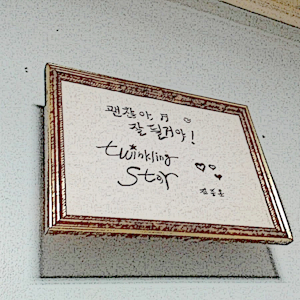 괜찮아
잘 될거야!
twinkling
Star